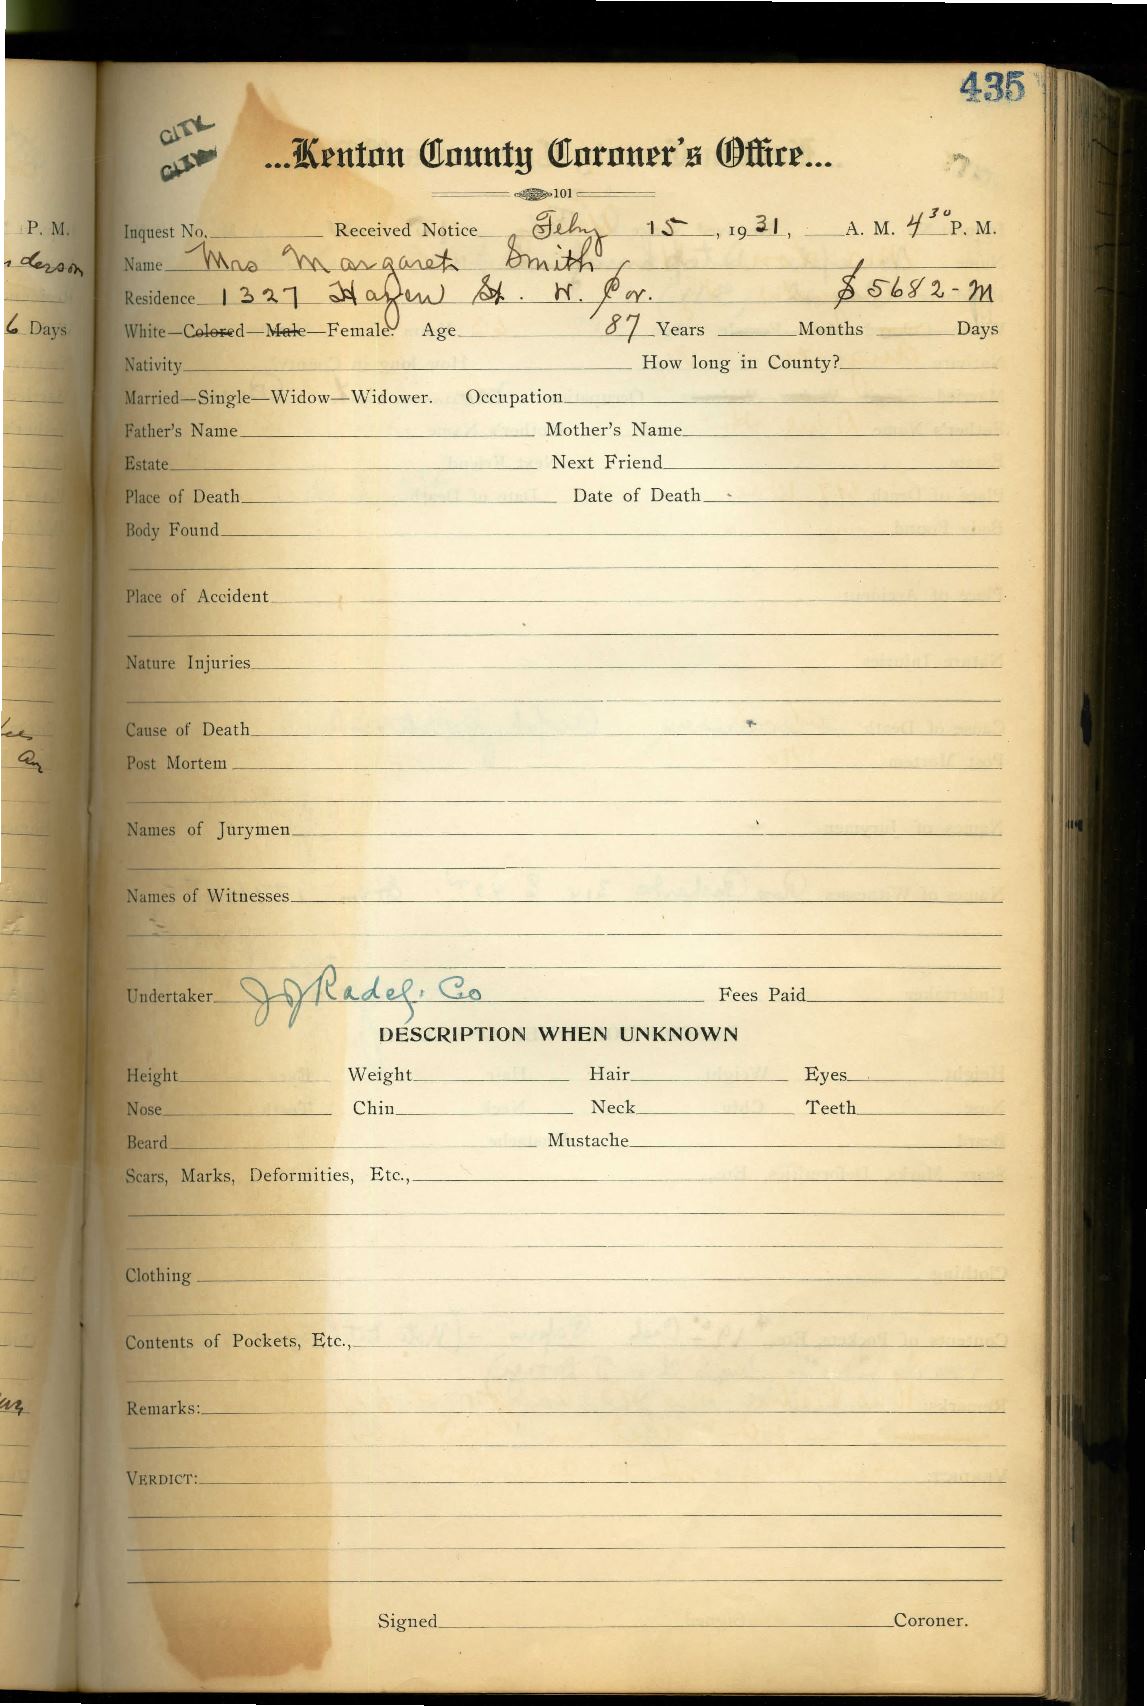 435
CITY
CITY
...Kenton County Coroner's Office...
101
Inquest No. Received Notice Feby 15, 1931, A. M. 4 30 P. M.
Name Mrs Margaret Smith
Residence 1327 Hazen St. W. Cov. 5682-M
White—Colored—Male—Female. Age 87 Years Months Days
Nativity How long in County?
Married—Single—Widow—Widower. Occupation
Father's Name Mother's Name
Estate Next Friend
Place of Death Date of Death
Body Found
Place of Accident
Nature Injuries
Cause of Death
Post Mortem
Names of Jurymen
Names of Witnesses
Undertaker J J Radel. Co Fees Paid
DESCRIPTION WHEN UNKNOWN
Height Weight Hair Eyes
Nose Chin Neck Teeth
Beard Mustache
Scars, Marks, Deformities, Etc.,
Clothing
Contents of Pockets, Etc.,
Remarks:
VERDICT:
Signed Coroner.
P. M.
derson
6 Days